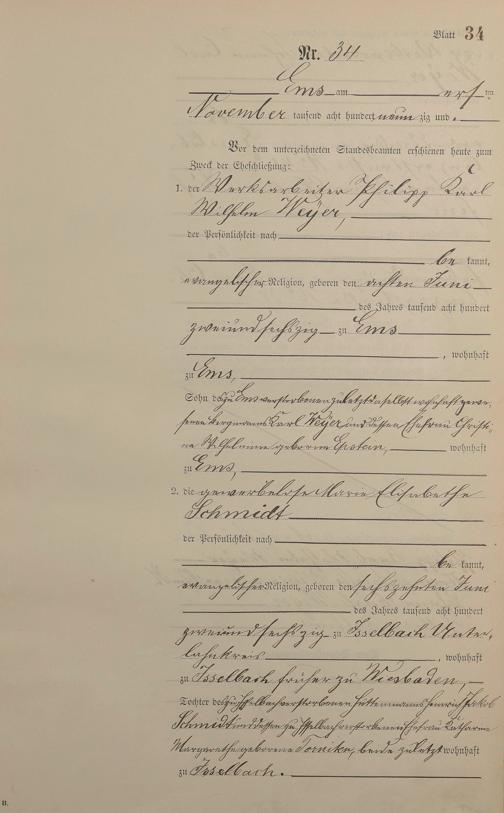 Blatt 34
Nr. 34
Ems am ersten
November tausend acht hundert neunzig und
Vor dem unterzeichneten Standesbeamten erschienen heute zum
Zweck der Eheschließung:
1. der Werksarbeiter Philipp Karl
Wilhelm Weyer,
der Persönlichkeit nach
be kannt,
evangelischer Religion, geboren den achten Juni
des Jahres tausend acht hundert
zweiundsechszig zu Ems
, wohnhaft
zu Ems,
Sohn des zu Ems verstorbenen zuletzt daselbst wohnhaft gewe-
senen Bergmanns Karl Weyer und dessen Ehefrau Christi-
ne Wilhelmine geborene Epstein, wohnhaft
zu Ems,
2. die gewerbelose Marie Elisabethe
Schmidt
der Persönlichkeit nach
be kannt,
evangelischer Religion, geboren den sechszehnten Juni
des Jahres tausend acht hundert
zweiundsechszig zu Isselbach Unter-
lahnkreis , wohnhaft
zu Isselbach früher zu Wiesbaden,
Tochter des zu Isselbach verstorbenen Hüttenmanns Heinrich Jakob
Schmidt und dessen zu Isselbach verstorbenen Ehefrau Katharine
Margarethe geborene beide zuletzt wohnhaft
zu Isselbach.
B.